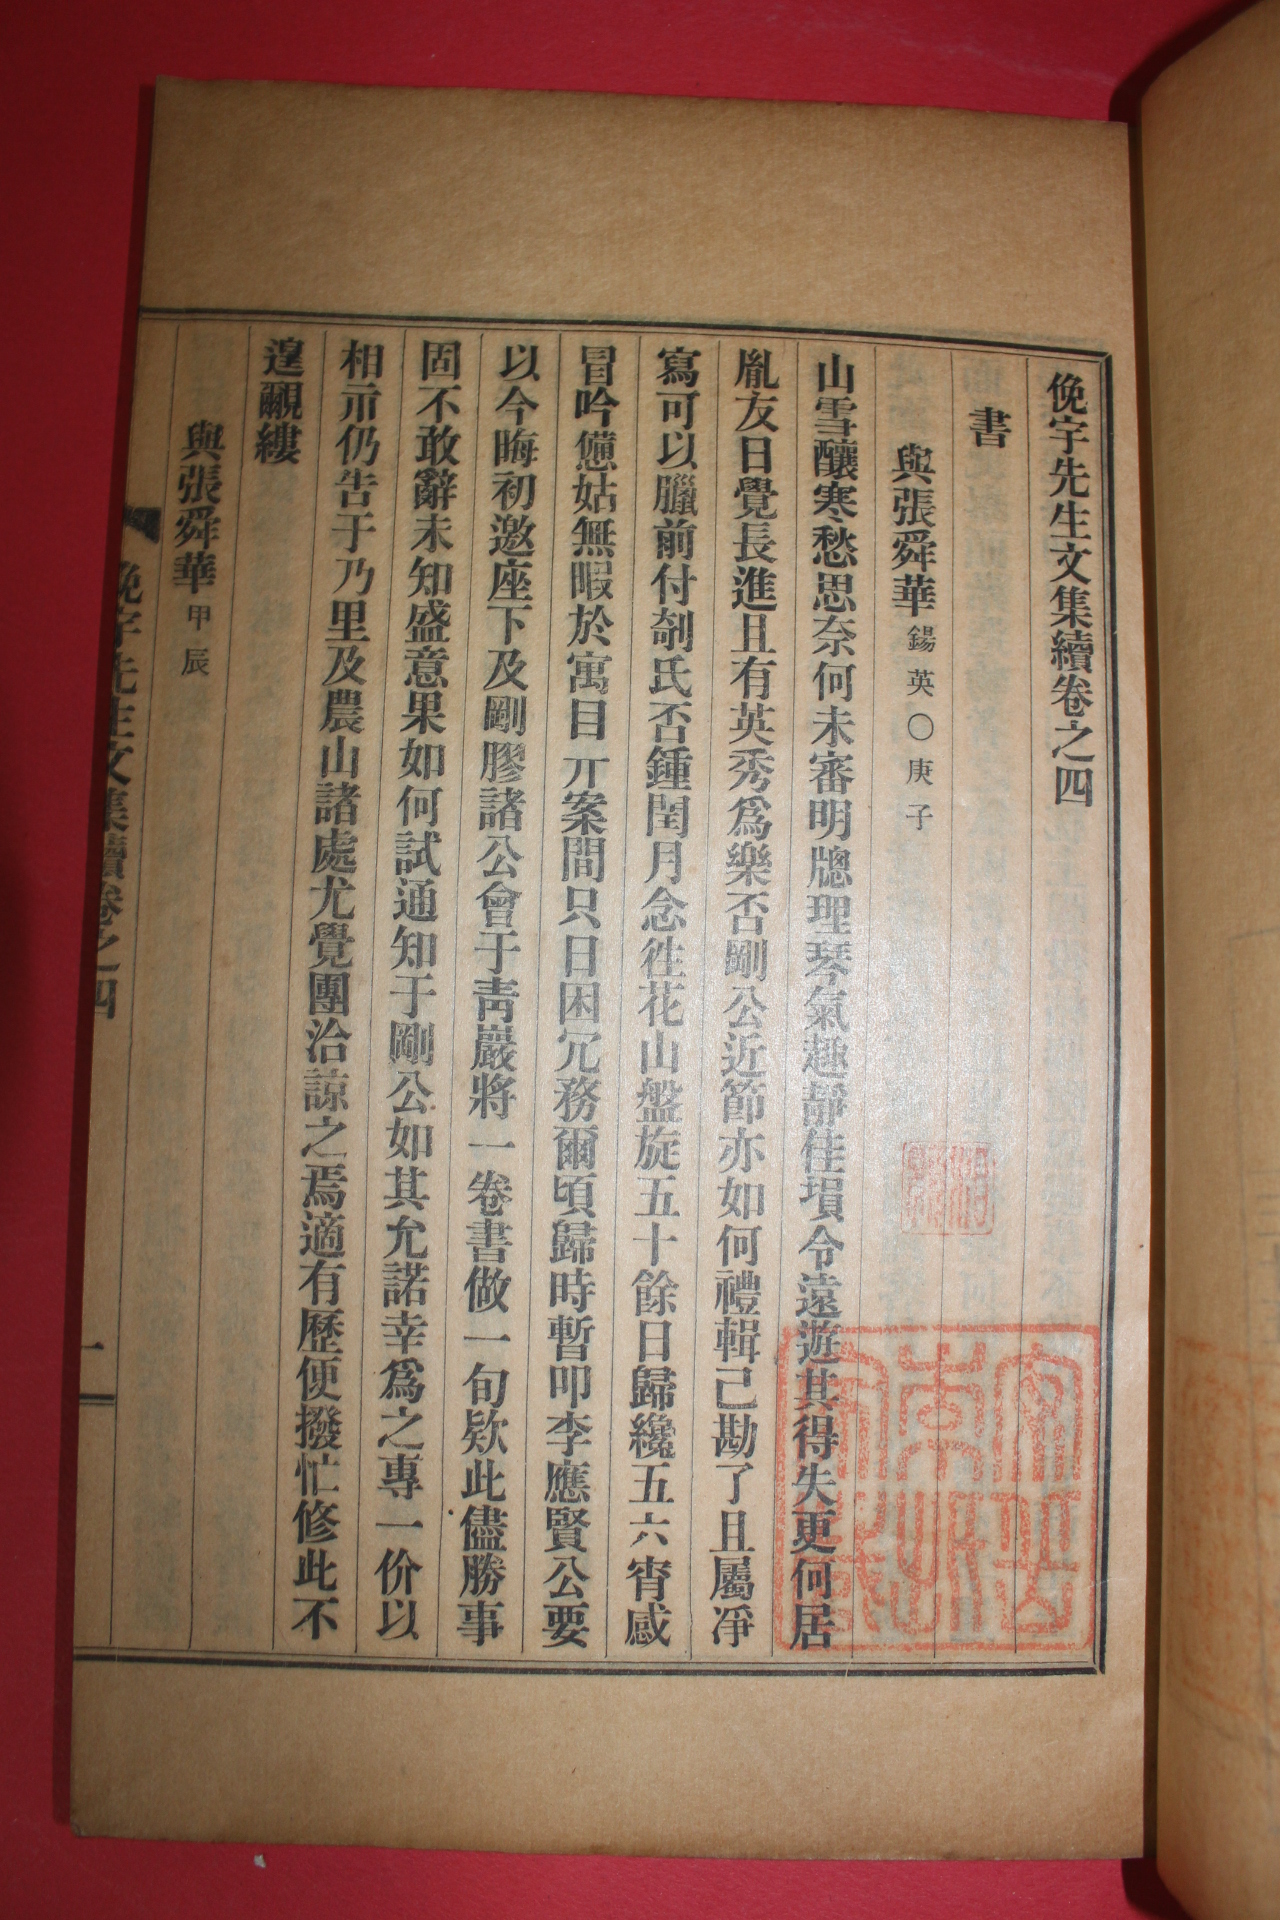 俛宇先生文集續卷之四
書
與張舜華 錫英〇庚子
山雪釀寒愁思奈何未審明牕理琴氣趣靜佳塤令遠遊其得失更何居
胤友日覺長進且有英秀爲樂否剛公近節亦如何禮輯已勘了且屬淨
寫可以臘前付剞氏否鍾閏月念徃花山盤旋五十餘日歸纔五六宵感
冒吟憊姑無暇於寓目丌案間只日困冗務爾頃歸時暫叩李應賢公要
以今晦初邀座下及剛膠諸公會于靑巖將一卷書做一旬欵此儘勝事
固不敢辭未知盛意果如何試通知于剛公如其允諾幸爲之專一价以
相示仍告于乃里及農山諸處尤覺團洽諒之焉適有歷便撥忙修此不
遑覼縷
與張舜華 甲辰
俛宇先生文集續卷之四
一